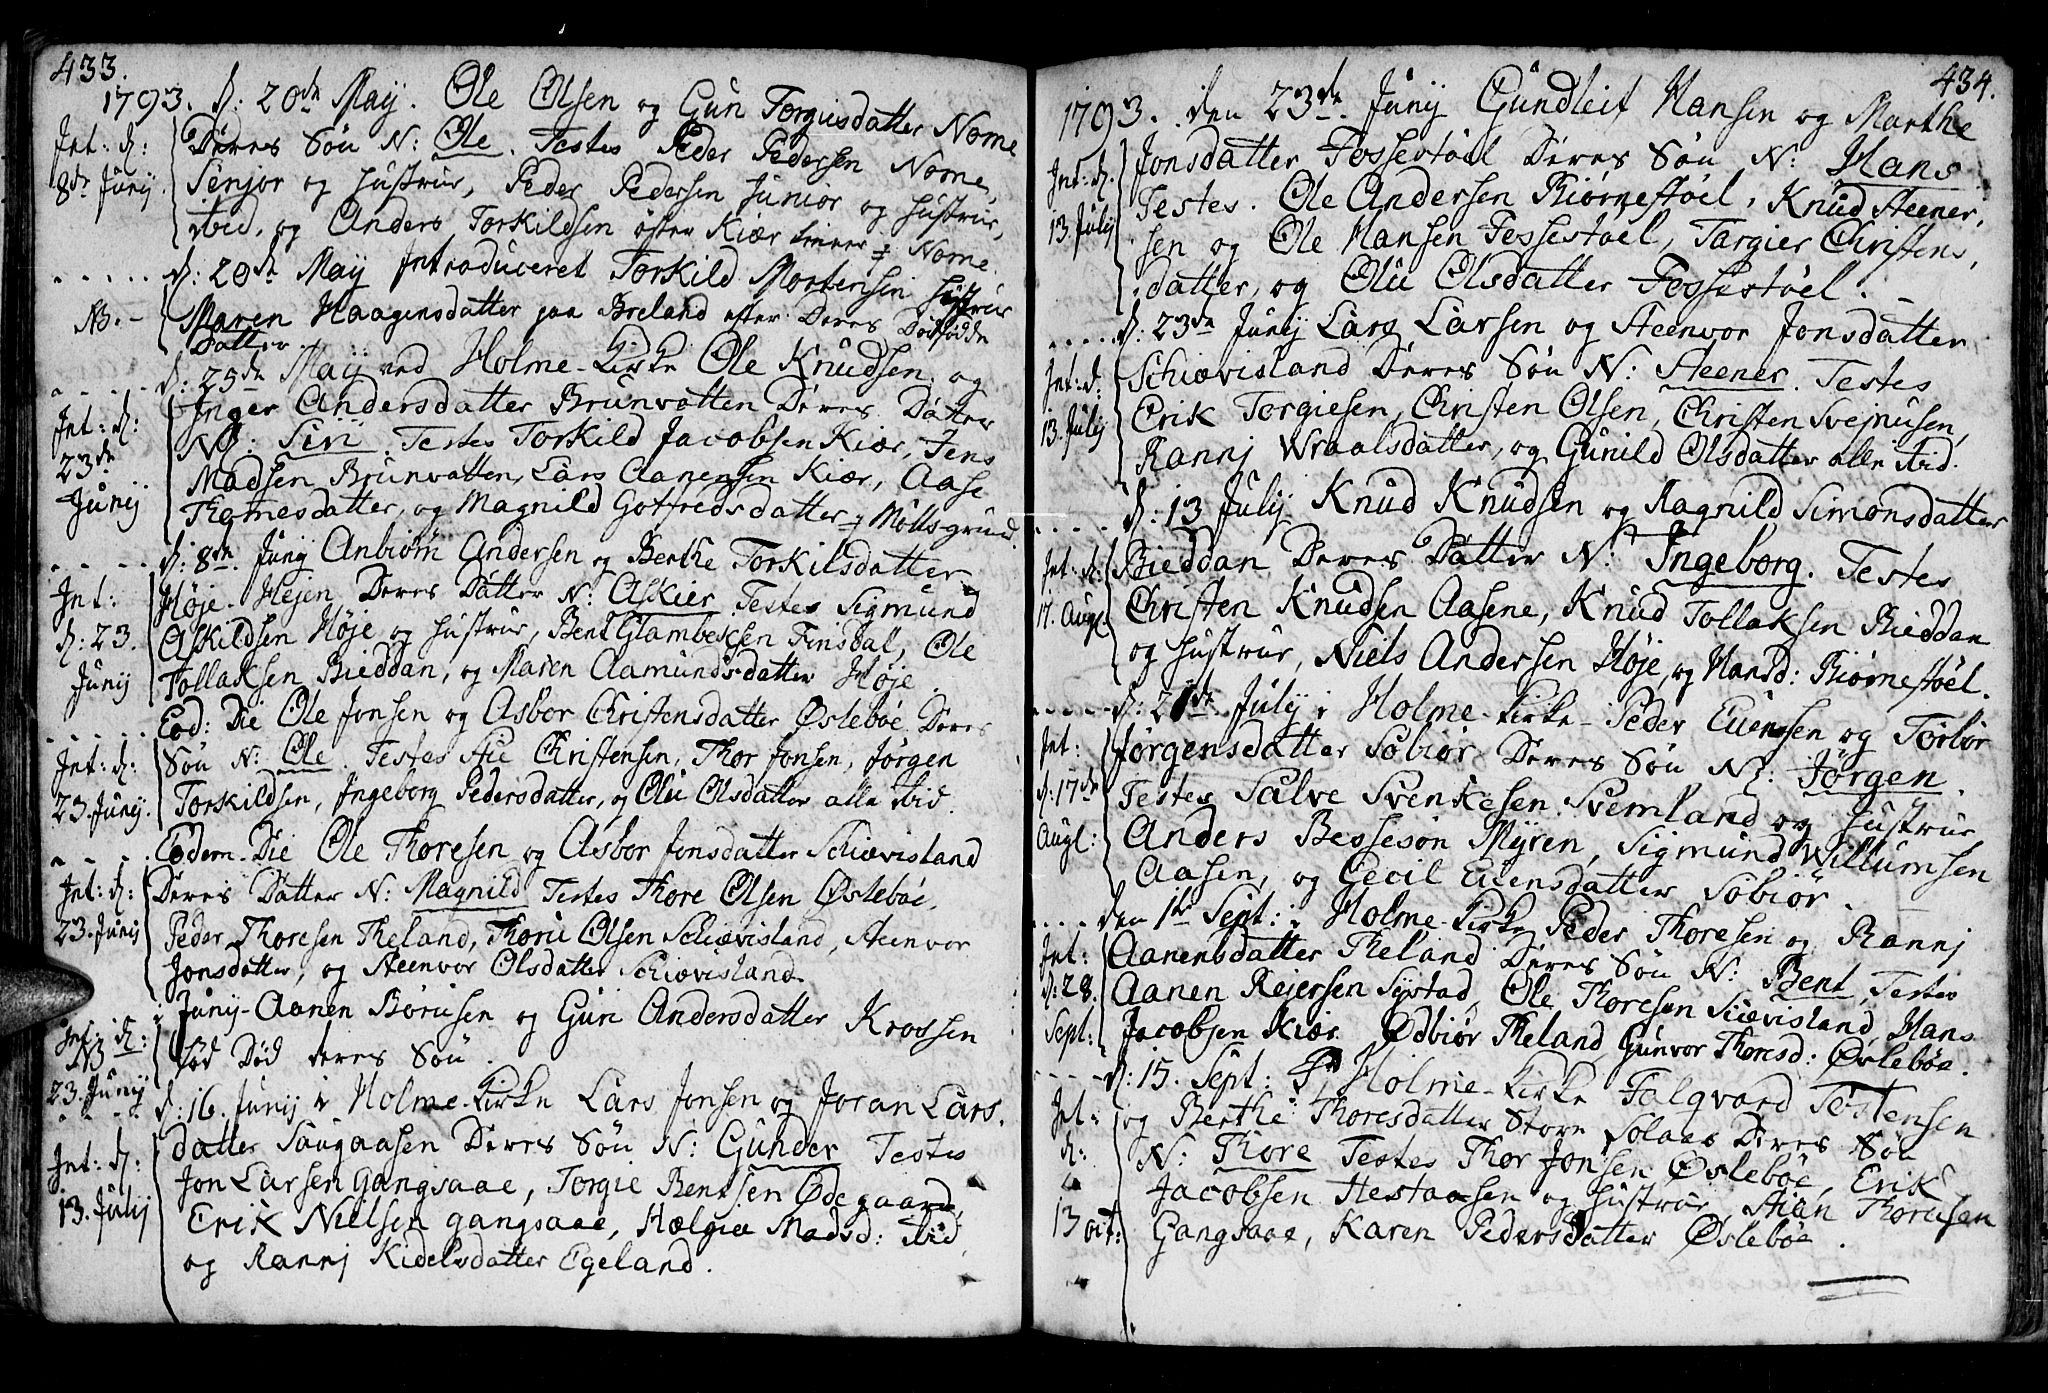 433.
1793. d: 20de Maij. Ole Olsen og Gun Torgiusdatter Nome
Int: d: Deres Søn N: Ole. Testes Peder Pedersen Nome
8de Junij. Senjor og Hustrue, Peder Pedersen Junior og Hustrue,
ibid, og Anders Torkildsen øster Kiær tiener på Nome.
d: 20de Maij Introduceret Torkild Mortensen Hustrue
NB. - Maren Haagensdatter paa Breland efter Deres Dødfødde
Datter.
d: 25de Maij ved Holme-Kirke Ole Knudsen og
Int: d: Inger Andersdatter Brunvatten Deres Datter
23de N: Siri. Testes Torkild Jacobsen Kiær, Jens
Junij Madsen Brunvatten, Lars Aanensen Kiær, Aase
Thomesdatter, og Magnild Gotfredsdatter Møllsgrund.
d: 8de Junij Anbiøm Andersen og Berthe Torkilsdatter
Int: Høje-Hejen Deres Datter N: Askier Testes Sigmund
d: 23. Askildsen Høje og Hustrue, Bent Glambeksen Finsdal, Ole
Junij Tollaksen Bieddan, og Maren Aamundsdatter Høje.
Eod: Die Ole Jonsen og Asbor Christensdatter Øslebøe Deres
Int: d: Søn N: Ole. Testes Stie Christensen, Thor Jonsen, Jørgen
23. Junij. Torkildsen, Ingeborg Pedersdatter, og Olu Olsdatter alle ibid.
Eodem-Die Ole Thoresen og Asbor Jonsdatter Schiævisland
Int: d: Deres Datter N: Magnild Testes Thore Olsen Øslebøe,
23. Junij Peder Thoresen Theland, Thoru Olsen Schiævisland, Steenvor
Jonsdatter, og Steenvor Olsdatter Schiævisland
i Junij - Aanen Børusen og Gun Andersdatter Krossen
Int: d: NB lod Død deres Søn.
23. Junij
d: 16. Junij i Holme-Kirke Lars Jonsen og Joran Lars-
datter Saugaasen Deres Søn N: Gunder Testes
Int: d: Jon Larsen Gangsaae, Torgie Bentsen Ødegaard,
13. Julij Erik Nielsen gangsaae, Hælgie Madsd: ibid,
og Rannj Kidelsdatter Egeland.
434.
1793. den 23de Junij Gundleif Hansen og Marthe
Int: d. Jonsdatter Fossestøel Deres Søn N: Hans.
13. Julij Testes. Ole Andersen Biørnestøel, Knud Steener-
sen og Ole Hansen Fossestøel, Targier Christens-
datter, og Olu Olsdatter Fossestøel.
d: 23de Junij Lars Larsen og Steenvor Jonsdatter
Int: d: Schiævisland Deres Søn N: Steener. Testes
13. Julij Erik Torgiesen, Christen Olsen, Christen Svejnusen,
Rannj Wraalsdatter, og Gunild Olsdatter alle ibid.
d: 13 Julij Knud Knudsen og Ragnild Simonsdatter
Int: d: Bieddan Deres Datter N: Ingeborg. Testes
17. Augl. Christen Knudsen Aasene, Knud Tollaksen Bieddan
og Hustrue, Niels Andersen Høje, og Hansd: Biørnestøel.
d: 21de Julij i Holme-Kirke Peder Evensen og Torbor
Int: Jørgensdatter Søbiør Deres Søn N: Jørgen.
d: 17de Testes Salve Svenkesen Svemland og Hustrue
Augl: Anders Bessesøn Myren, Sigmund Willumsen
Aasen, og Cecil Evensdatter Søbiør.
den 1te Sept: i Holme-Kirke Peder Thoresen og Rannj
Int: Aanensdatter Theland Deres Søn N: Bent, Testes
d: 28. Aanen Rejersen Systad, Ole Thoresen Sciævisland, Hans
Sept: Jacobsen Kiær. Ødbiør Theland, Gunvor Thoresd: Øslebøe.
d: 15. Sept: I Holme-Kirke Falqvard Tostensen
Int: og Berthe Thoresdatter Store Solaas Deres Søn
d: N: Thore Testes Thor Jonsen Øslebøe, Erik
Jacobsen Hestaasen og Hustrue, Stian Thorusen
13 oct: Gangsaae, Karen Pedersdatter Øslebøe.